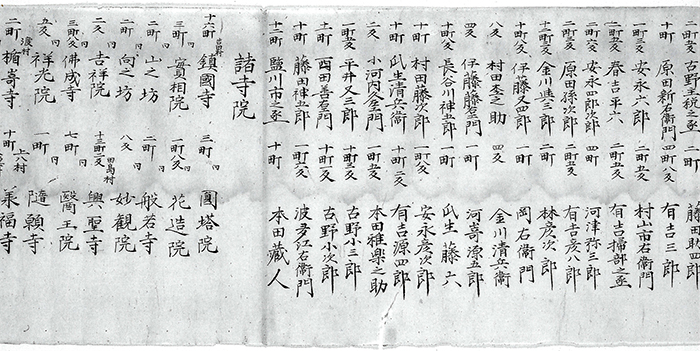 古野玉松之丞 二町 藤田助四郎
十町 原田新右衛門 一町 有吉三郎
一町三反 安永六郎 一町五反 村山市右衛門
春吉平六 二町五反 有吉掃部之丞
安永四郎次郎 四町 河津弥三郎
二町三反 原田孫次郎 二町四反 有吉彦八郎
三町五反 金川與三郎 四町 林彦次郎
十町 伊藤又四郎 一町 岡右衛門
八反 村田杢之助 四反 金川清兵衛
伊藤藤左衛門 四町 河喜源五郎
一町五反 長谷川神五郎 一町五反 瓜生藤六
十町 村田藤次郎 一町五反 安永彦次郎
十町 瓜生清兵衛 十町二反 有吉源四郎
二反 小河内久左衛門 一町五反 本田雅樂之助
一町五反 平井又三郎 十町三反 古野小三郎
十町 酉田善左衛門 十町一反 古野小次郎
十町 藤田神五郎 一町六反 波多江右衛門
十二町 鹽川市之丞 十町 本田蔵人
諸寺院
十六町 鎮國寺 三町 圓塔院
三町 實相院 一町八反 花造院
二町 山之坊 二町 般若寺
二町 向之坊 八反 妙観院
二町 吉祥院 田島村 十三町二反 興聖寺
三町八反 佛成寺 七町 醫王院
五反 祥光院 十町 隨願寺
二町 楯尊寺 上八村 十町 承福寺